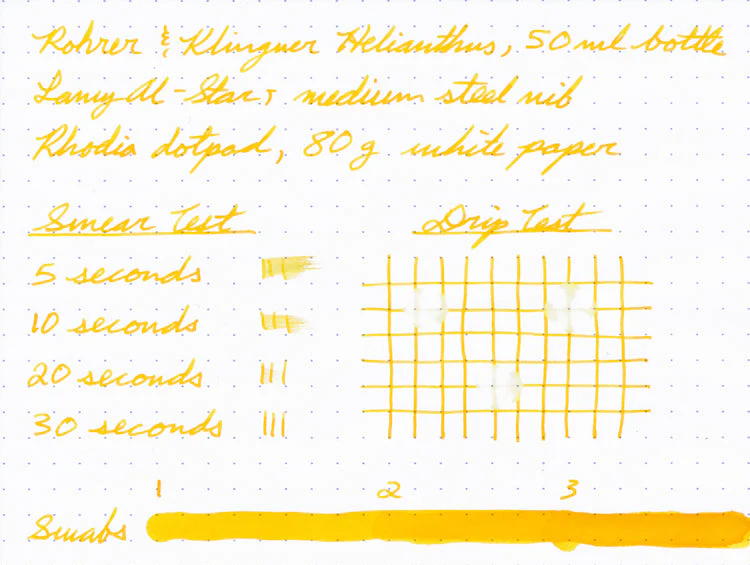 Rohrer & Klingner Helianthus, 50 ml bottle
Lamy Al-Star, medium steel nib
Rhodia dotpad, 80g white paper
Smear Test
Drip Test
5 seconds
10 seconds
20 seconds
30 seconds
1 2 3
Swabs